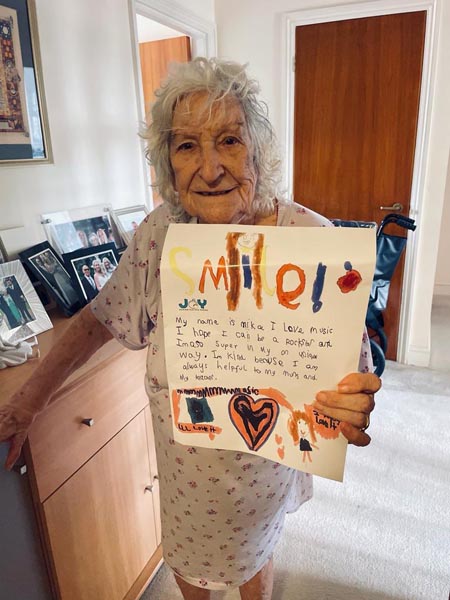 SMiLE!
JOY
My name is mika I love music
I hope I can be a rockstar and
Im also super in my on
way. Im kind because I am
always helpful to my mum and
my
music
I love it